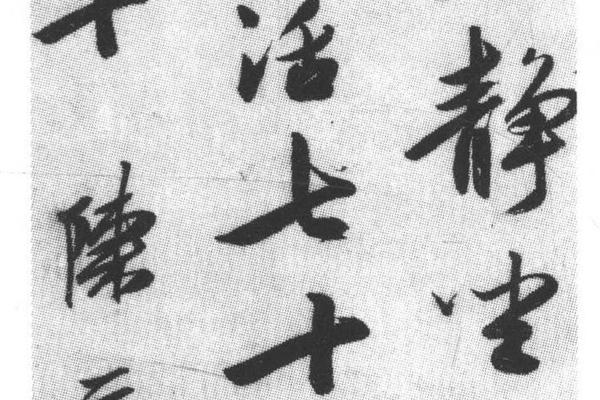 静坐
活七十
十陳